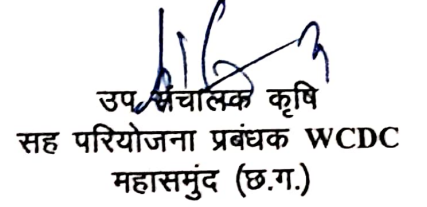 उप संचालक कृषि
सह परियोजना प्रबंधक WCDC
महासमुंद (छ.ग.)